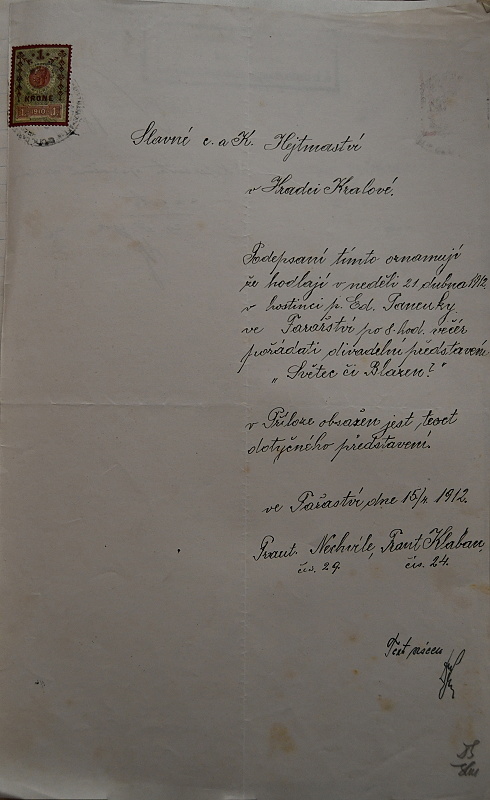 1
KRONE
1 1910 1
Slavné c. a K. Hejtmaství
v Hradci Kralové.
Podepsaní tímto oznamují
že hodlají v neděli 21 dubna 1912
v hostinci p. Ed.
ve po 8 hod. večer
pořádati divadelní představení
„Světec či Blazen?"
v Příloze obsažen jest text
dotyčného představení.
ve dne 15/4 1912.
Frant. Nechvíle, Frant Klaban,
čís. 29. čís. 24.